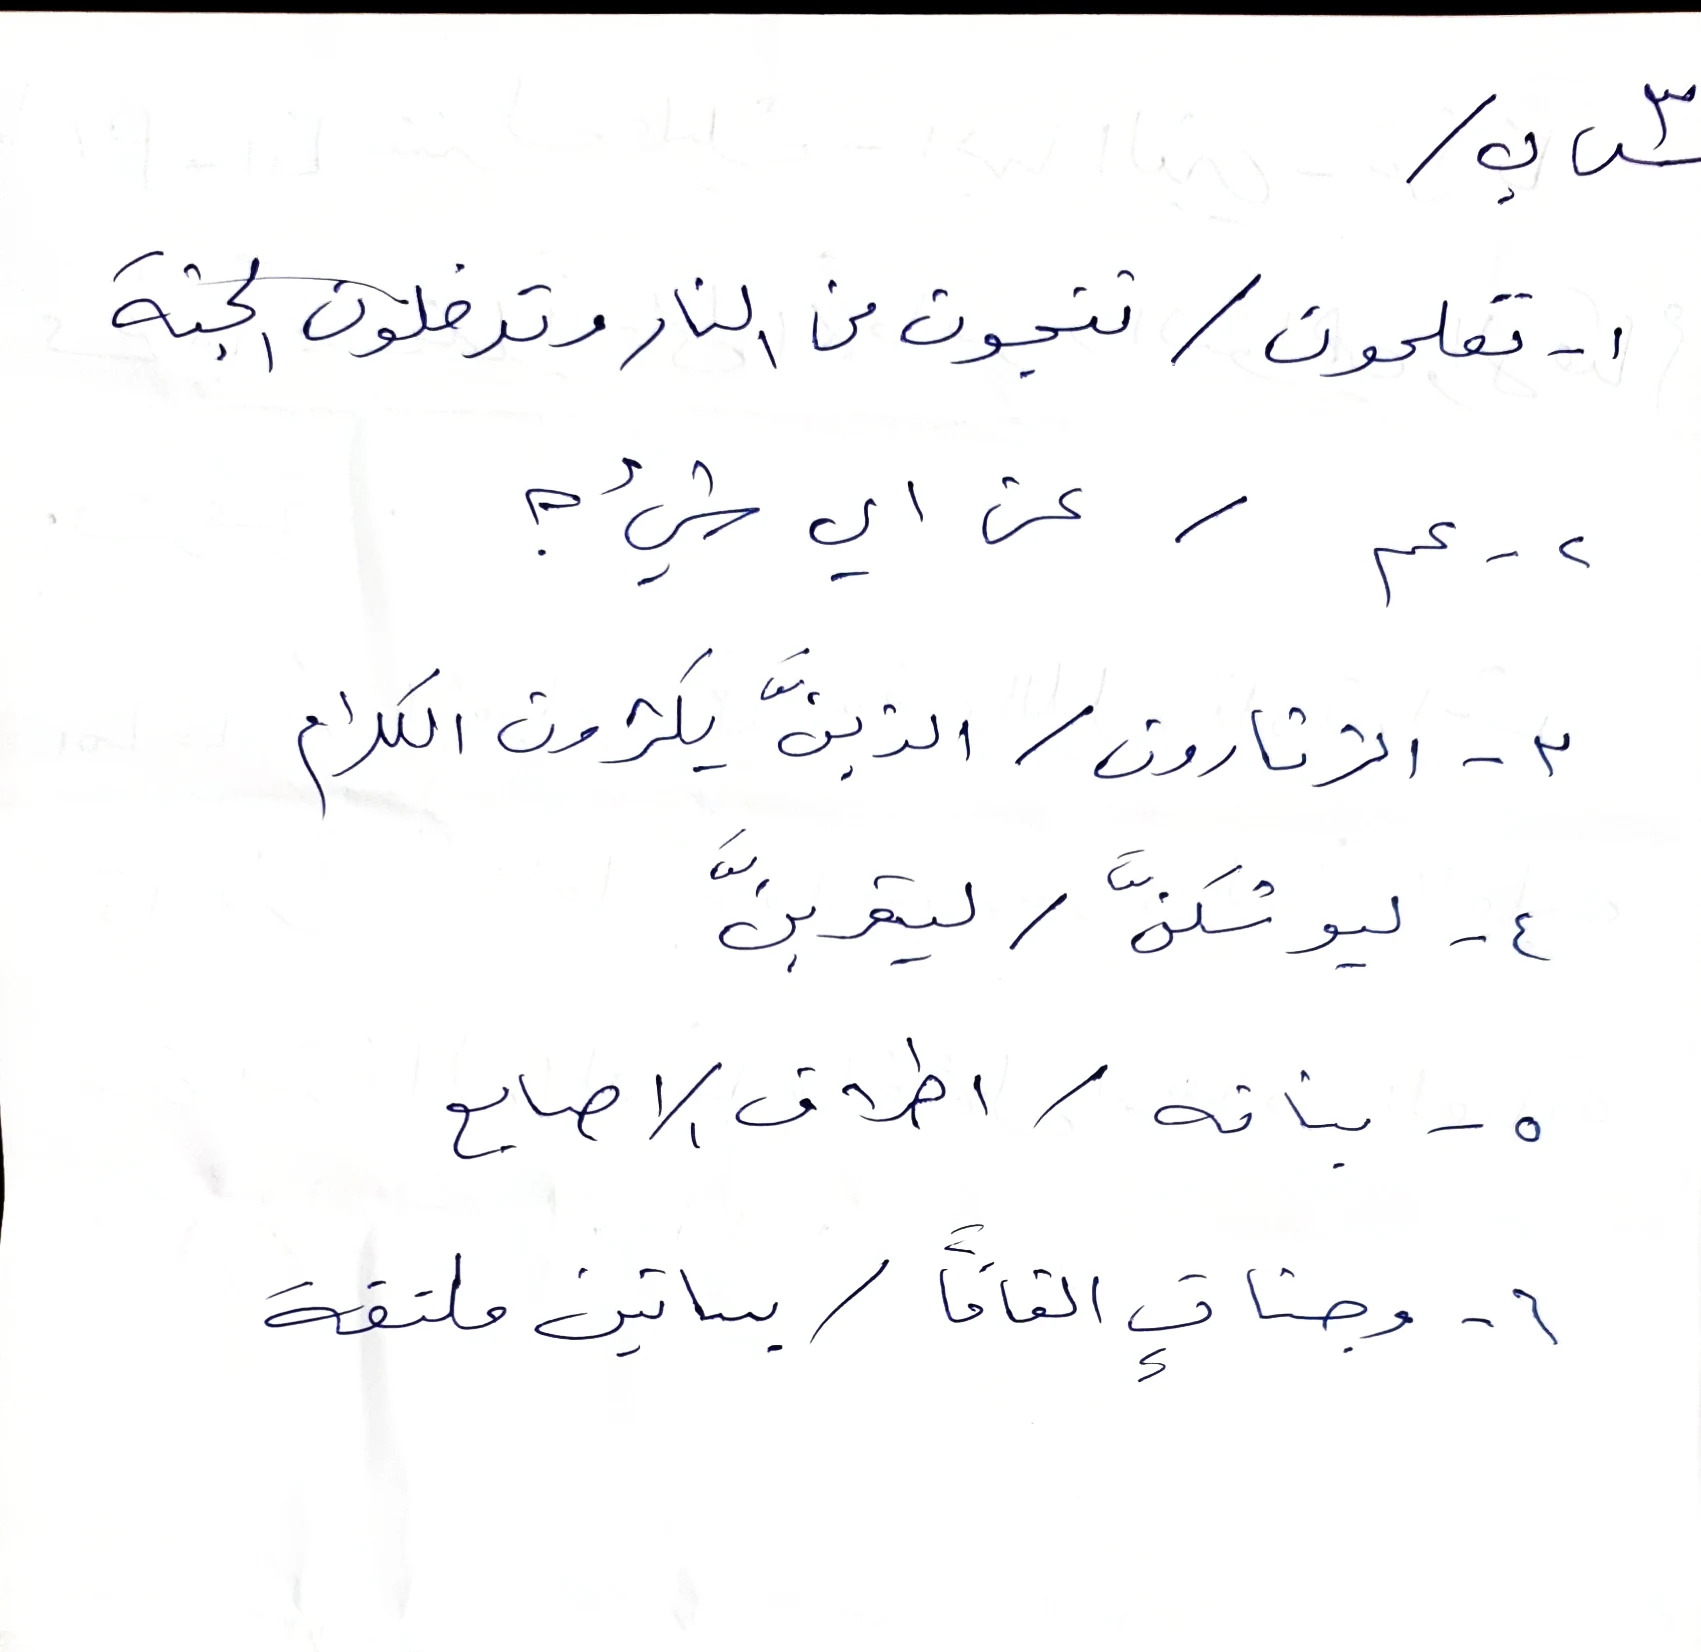 س٣ ب /
١ - تفلحون / تنجون من النار وتدخلون الجنة
٢ - عم / عن اي شيءُ ؟
٣ - الثرثارون / الذينَّ يكثرون الكلام
٤ - ليوشكنَّ / ليقربنَّ
٥ - بنانه / اطراف الاصابع
٦ - وجناتٍ الفافاً / بساتين ملتفة